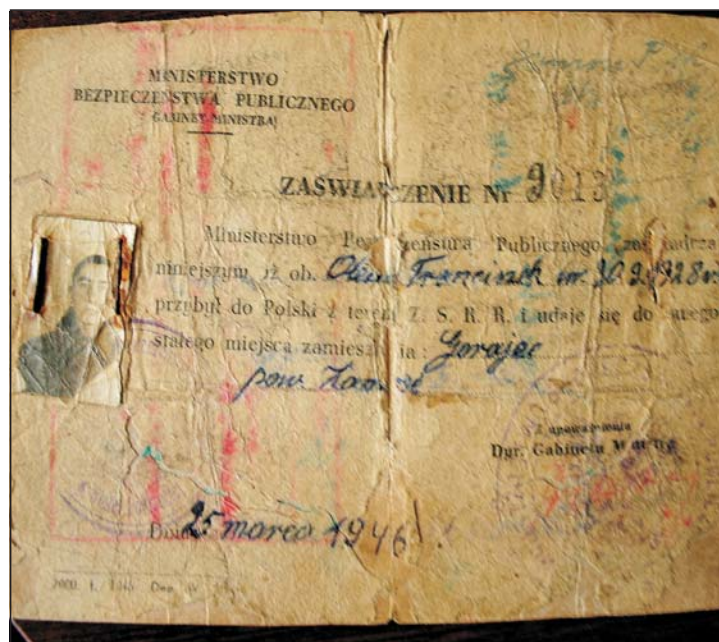 MINISTERSTWO
BEZPIECZEŃSTWA PUBLICZNEGO
GABINET MINISTRA
ZAŚWIADCZENIE Nr 9013
Ministerstwo Bezpieczeństwa Publicznego zaświadcza
niniejszym, iż ob. Franciszek ur. 30.9.1928 r.
przybył do Polski z terenu Z. S. R. R. i udaje się do swego
stałego miejsca zamieszkania: Gorajec
pow. Zamość
Z upoważnienia
Dyr. Gabinetu Ministra
Dnia 25 marca 1946